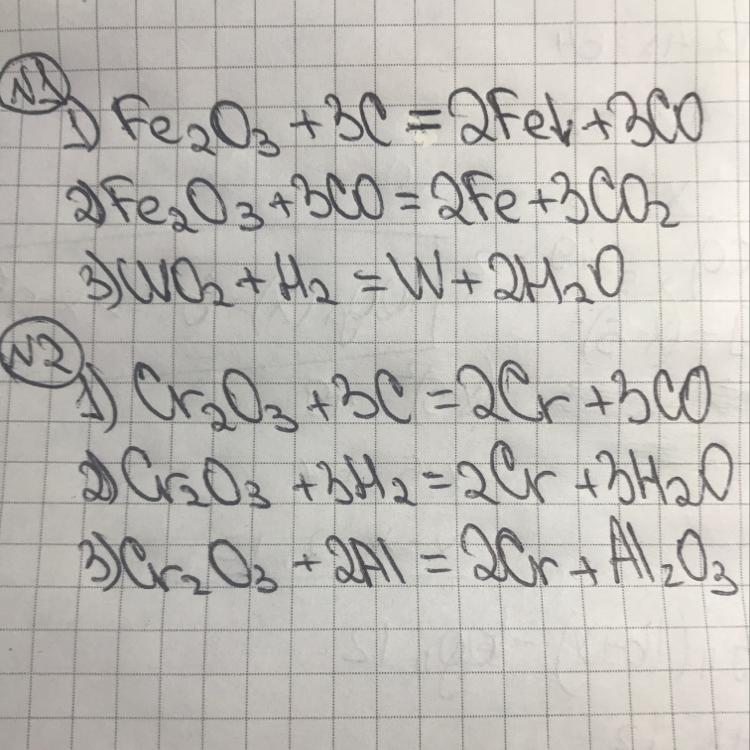 N1
1) Fe₂O₃ + 3C = 2Fe↓ + 3CO
2) Fe₂O₃ + 3CO = 2Fe + 3CO₂
3) WO₂ + H₂ = W + 2H₂O
N2
1) Cr₂O₃ + 3C = 2Cr + 3CO
2) Cr₂O₃ + 3H₂ = 2Cr + 3H₂O
3) Cr₂O₃ + 2Al = 2Cr + Al₂O₃